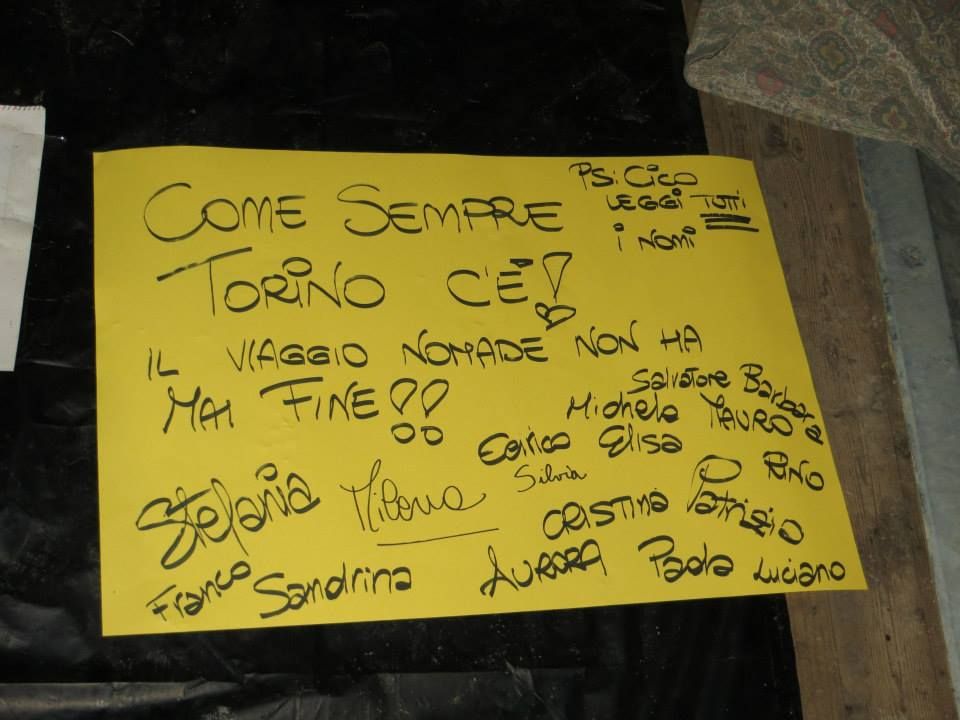 COME SEMPRE
TORINO C'È!
IL VIAGGIO NOMADE NON HA
MAI FINE!!
PS: CICO
LEGGI TUTTI
I NOMI
Salvatore Barbara
Michela MAURO
Enrico Elisa
Silvia
RINO
Stefania Milena
CRISTINA Patrizio
Franco Sandrina AURORA Paola Luciano